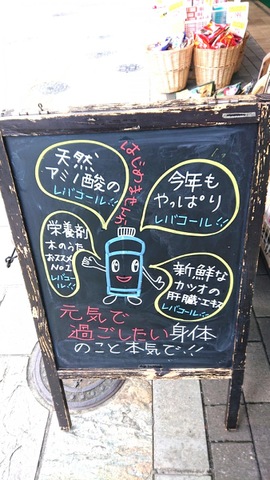 はじめましょう
天然
アミノ酸の
レバコール!!
今年も
やっぱり
レバコール!!
栄養剤
木のうた
おススメ
No.1
レバコール!!
新鮮な
カツオの
肝臓エキス
レバコール!!
元気で
過ごしたい身体
のこと本気で!!